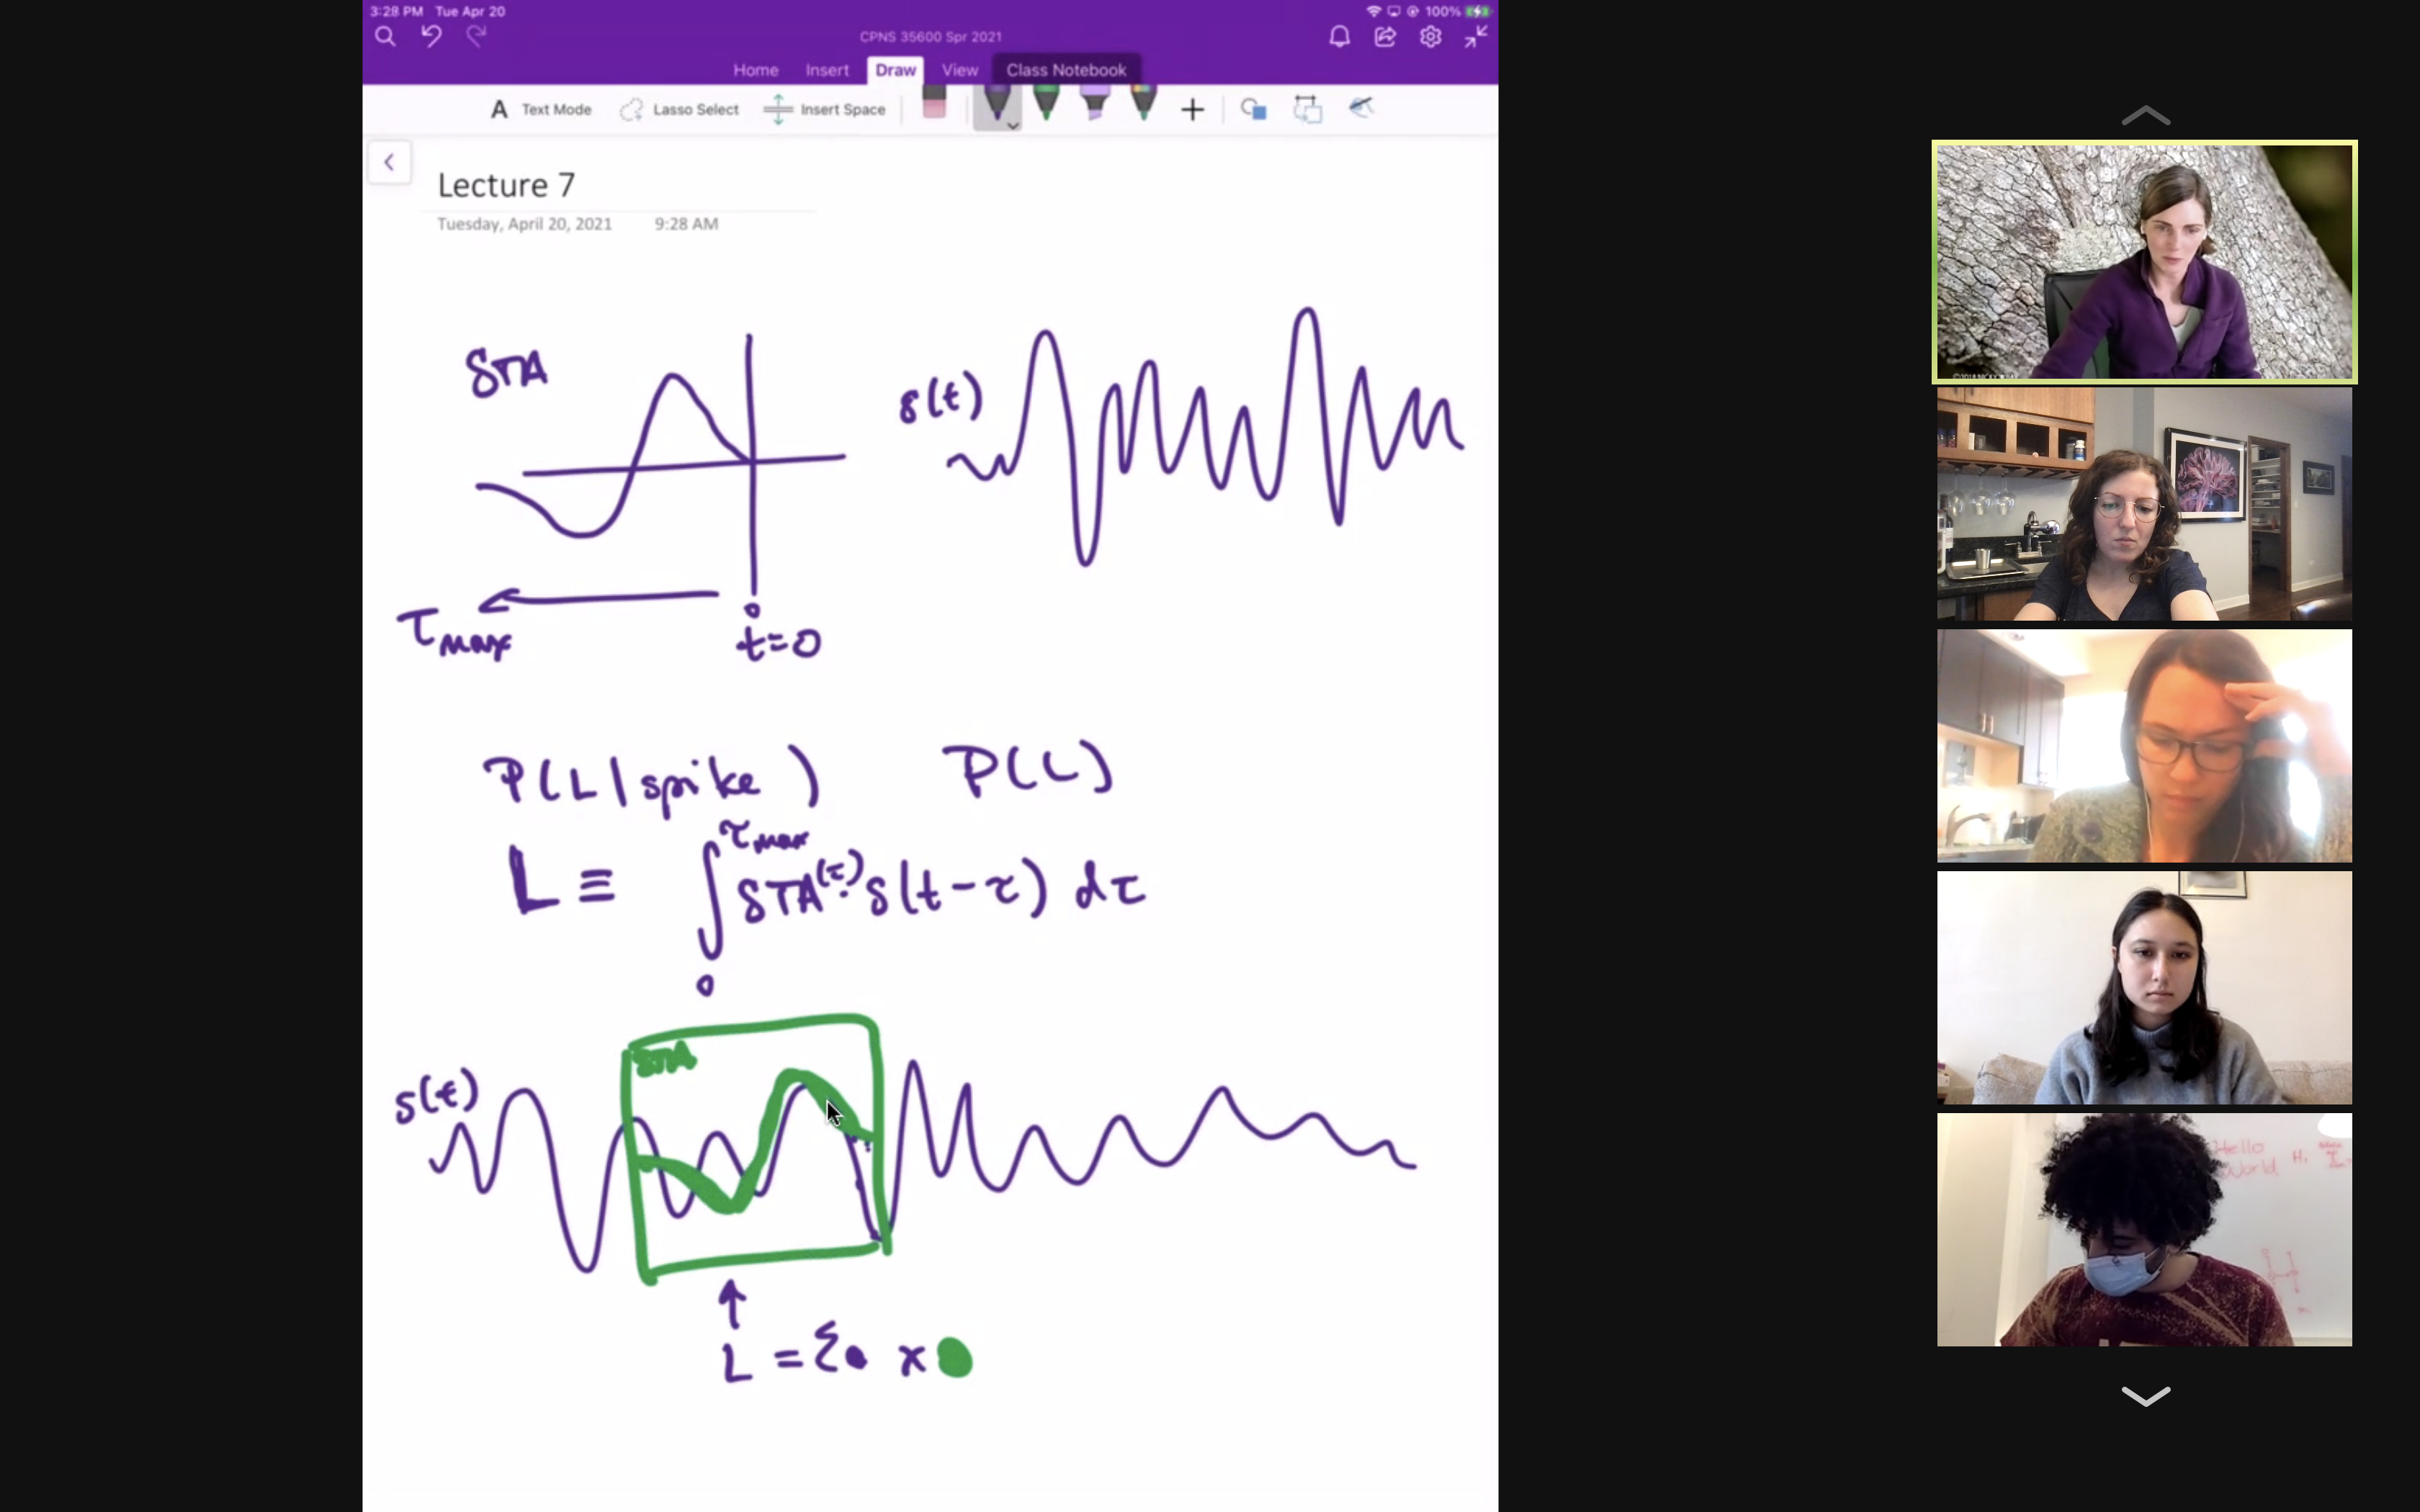 3:28 PM Tue Apr 20
100%
CPNS 35600 Spr 2021
Home Insert Draw View Class Notebook
A Text Mode Lasso Select Insert Space
Lecture 7
Tuesday, April 20, 2021 9:28 AM
STA
s(t)
τmax
t=0
P(L|spike) P(L)
L ≡ ∫₀^τmax STA(τ)·s(t-τ) dτ
STA
s(t)
L = Σ● x ●
Hello
World H.